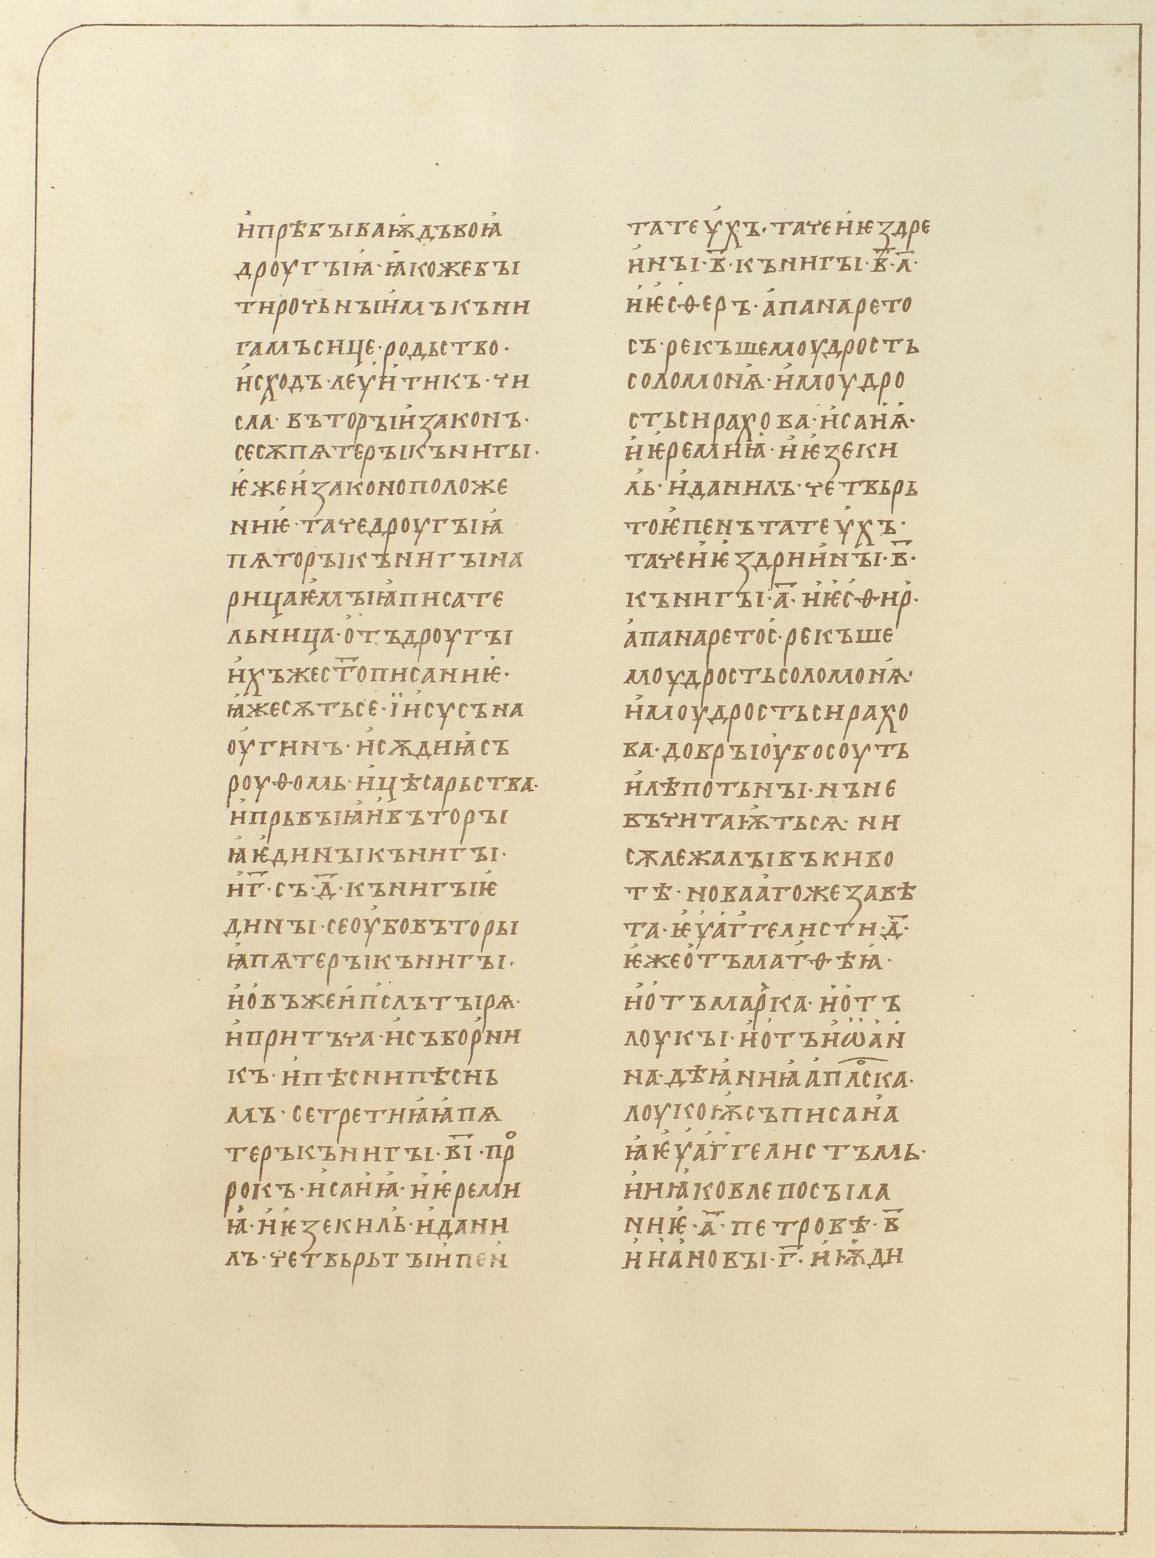 и҆прѣбꙑваѭдъвоꙗ
дроугꙑꙗ·ꙗкожебꙑ
тирочьнꙑи҆мъкъни
гамъсице·родьство·
и҆сходъ·леѵи҆тикъ·чи
сла·въторꙑи҆законъ·
сесѫпѧтерꙑкънигꙑ·
ѥжеи҆законоположе
ниѥ·тачедроугꙑꙗ
пѧторꙑкънигꙑна
рицаѥмꙑꙗписате
льница·о҆тъдроугꙑ
и҆хъжест҃описаниѥ·
ꙗжесѫтьсе·їи҆сусъна
оу҆гинъ·и҆сѫдиꙗсъ
роуѳомь·и҆цѣсарьства·
и҆прьвꙑꙗи҆въторꙑ
ꙗѥдинꙑкънигꙑ·
и҆г҃·съ·д҃·кънигꙑѥ
динꙑ·сеоу҆бовъторꙑ
ꙗпѧтерꙑкънигꙑ·
и҆о҆въжеи҆пслътꙑрѧ·
и҆притъча·и҆съборни
къ·и҆пѣснипѣснь
мъ·сетретиꙗꙗпѧ
теръкънигꙑ·в҃і·прⷪ
рокъ·и҆саиꙗ·и҆ѥреми
ꙗ·и҆ѥзекиль·и҆дани
лъ·четвьрьтꙑипен
татеѵхъ·тачеи҆ѥздре
и҆нꙑ·в҃·кънигꙑ·в҃·л҃·
и҆ѥсѳеръ·а҆панарето
съ·рекъшемоудрость
соломонꙗ·и҆моудро
стьсирахова·и҆саиꙗ·
и҆ѥремиꙗ·и҆ѥзеки
ль·и҆данилъ·четвьрь
тоѥпенътатеѵхъ·
тачеи҆ѥздриинꙑ·в҃·
кънигꙑ·а҃·и҆ѥсѳир·
а҆панаретос·рекъше
моудростьсоломонꙗ·
и҆моудростьсирахо
ва·добрꙑоу҆босоуть
и҆лѣпотьнꙑ·нъне
въчитаѭтьсѧ·ни
сѫлежалꙑвъкиво
тѣ·новаа҆гожезавѣ
та·ѥѵа҆ггелисти·д҃·
ѥжео҆тъматѳѣꙗ·
и҆о҆тъмарка·и҆о҆тъ
лоукꙑ·и҆о҆тъи҆ѡа҆н
на·дѣꙗниꙗа҆плⷭ҇ска·
лоукоѭсъписана
ꙗѥѵа҆ггелистъмь·
и҆иꙗковлепосъла
ниѥ·а҃·петровѣ·в҃
и҆иа҆новꙑ·г҃·и҆ѭди